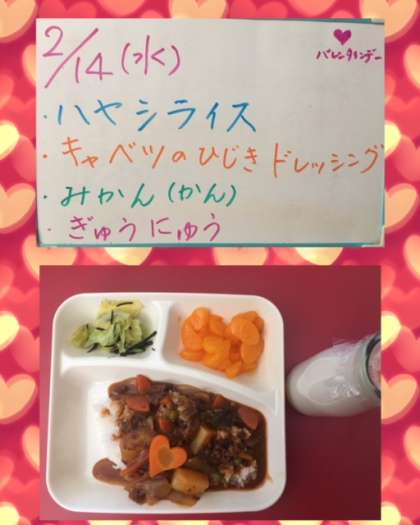 2/14(水)
バレンタインデー
・ハヤシライス
・キャベツのひじきドレッシング
・みかん(かん)
・ぎゅうにゅう